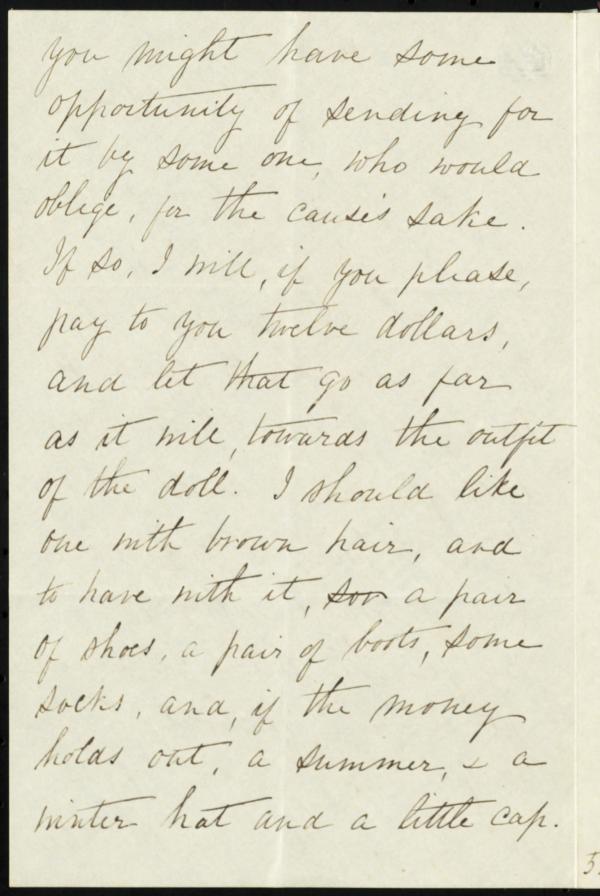 you might have some
opportunity of sending for
it by some one, who would
oblige, for the cause's sake.
If so, I will, if you please,
pay to you twelve dollars,
and let that go as far
as it will, towards the outfit
of the doll. I should like
one with brown hair, and
to have with it, a pair
of shoes, a pair of boots, some
socks, and, if the money
holds out, a summer, & a
winter hat and a little cap.